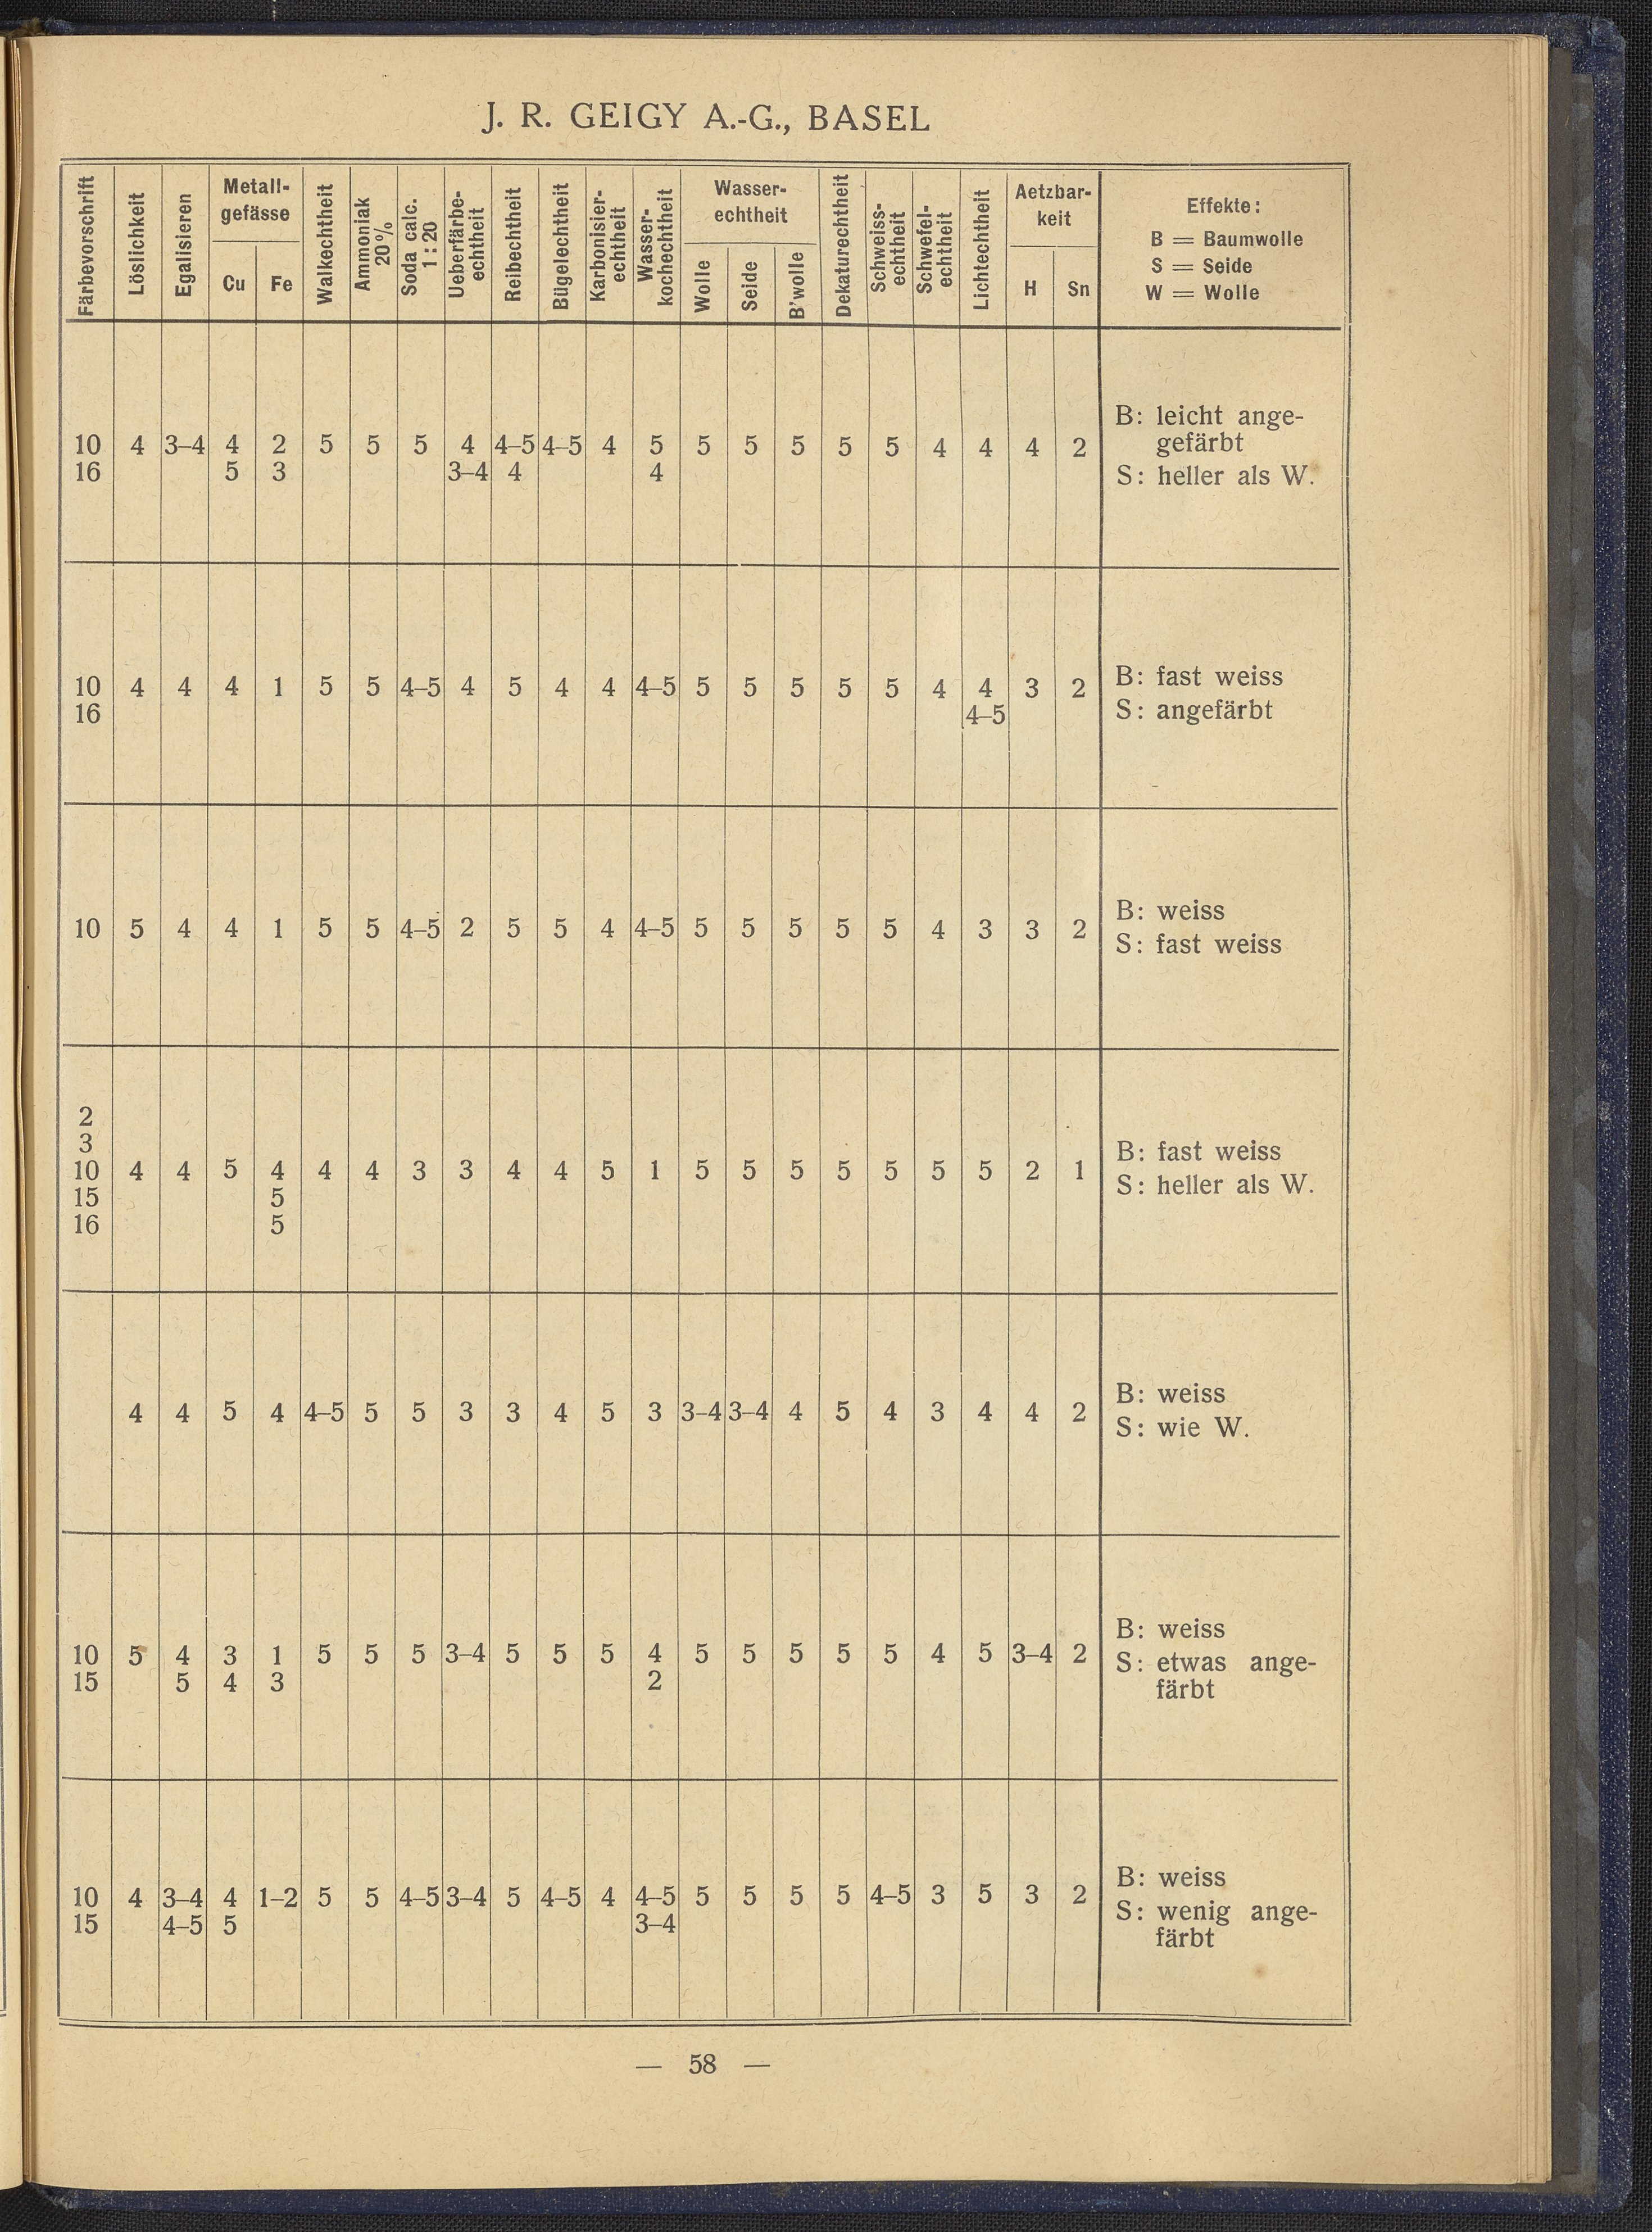 J. R. GEIGY A.-G., BASEL
Färbevorschrift
Löslichkeit
Egalisieren
Metall-
gefässe
Cu Fe
Walkechtheit
Ammoniak
20%
Soda calc.
1 : 20
Ueberfärbe-
echtheit
Reibechtheit
Bügelechtheit
Karbonisier-
echtheit
Wasser-
kochechtheit
Wasser-
echtheit
Wolle
Seide
B'wolle
Dekaturechtheit
Schweiss-
echtheit
Schwefel-
echtheit
Lichtechtheit
Aetzbar-
keit
H Sn
Effekte:
B = Baumwolle
S = Seide
W = Wolle
10 4 3–4 4 2 5 5 5 4 4–5 4–5 4 5 5 5 5 5 5 4 4 4 2
16 5 3 3–4 4 4
B: leicht ange-
gefärbt
S: heller als W.
10 4 4 4 1 5 5 4–5 4 5 4 4 4–5 5 5 5 5 5 4 4 3 2
16 4–5
B: fast weiss
S: angefärbt
10 5 4 4 1 5 5 4–5 2 5 5 4 4–5 5 5 5 5 5 4 3 3 2
B: weiss
S: fast weiss
2
3
10 4 4 5 4 4 4 3 3 4 4 5 1 5 5 5 5 5 5 5 2 1
15 5
16 5
B: fast weiss
S: heller als W.
4 4 5 4 4–5 5 5 3 3 4 5 3 3–4 3–4 4 5 4 3 4 4 2
B: weiss
S: wie W.
10 5 4 3 1 5 5 5 3–4 5 5 5 4 5 5 5 5 5 4 5 3–4 2
15 5 4 3 2
B: weiss
S: etwas ange-
färbt
10 4 3–4 4 1–2 5 5 4–5 3–4 5 4–5 4 4–5 5 5 5 5 4–5 3 5 3 2
15 4–5 5 3–4
B: weiss
S: wenig ange-
färbt
— 58 —